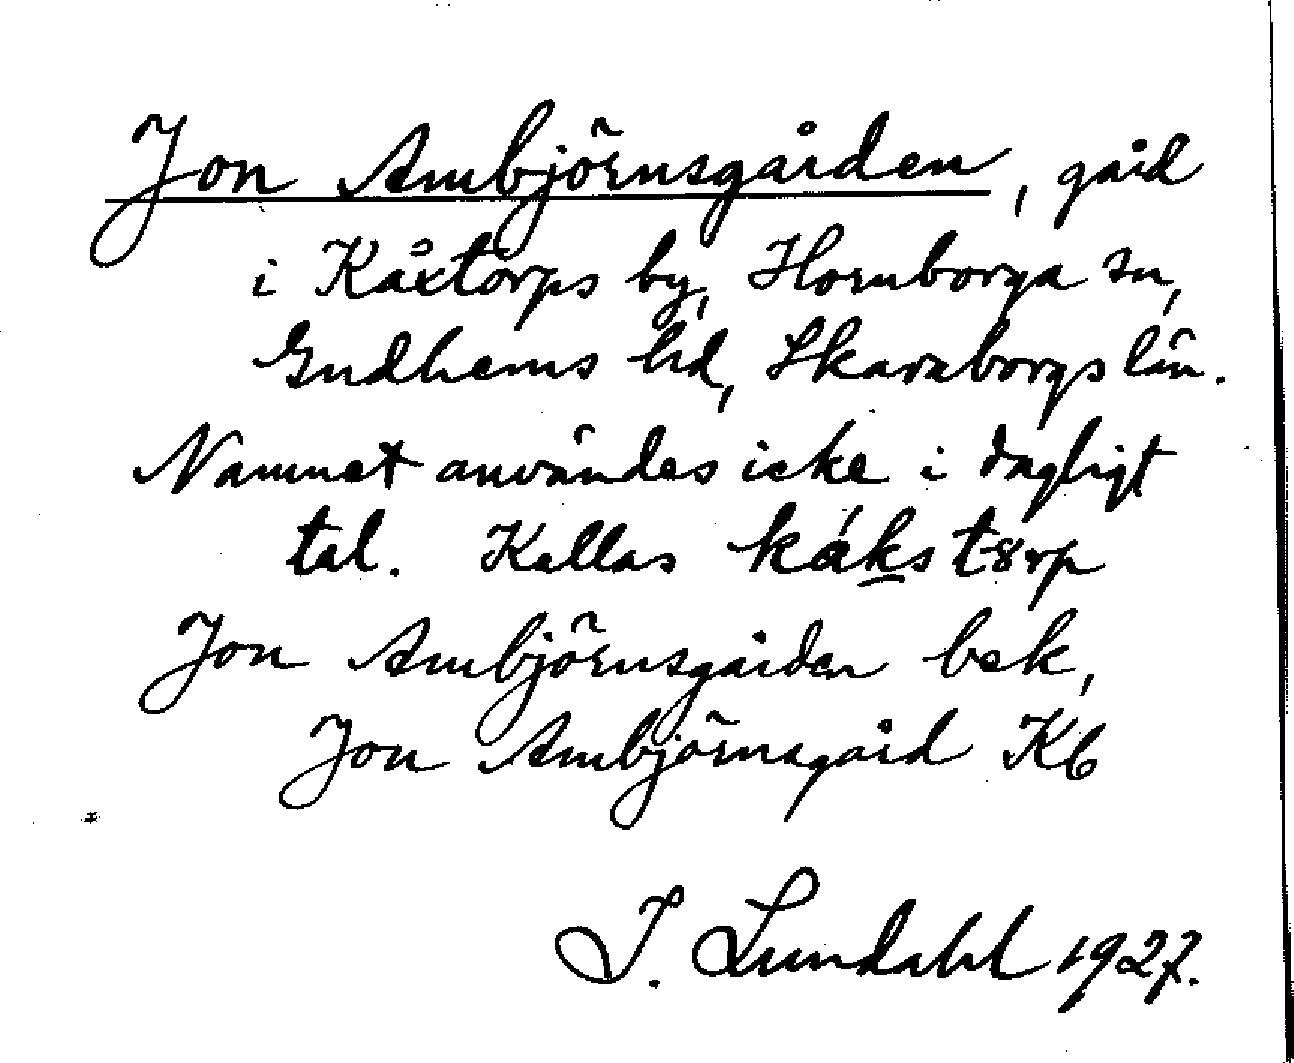 Jon Ambjörnsgården, gård
i Kåxtorps by, Hornborga sn,
Gudhems hd, Skaraborgs län.
Namnet användes icke i dagligt
tal. Kallas kákstȣrp
Jon Ambjörnsgården bek,
Jon Ambjörnsgård Kb
I. Lundahl 1927.